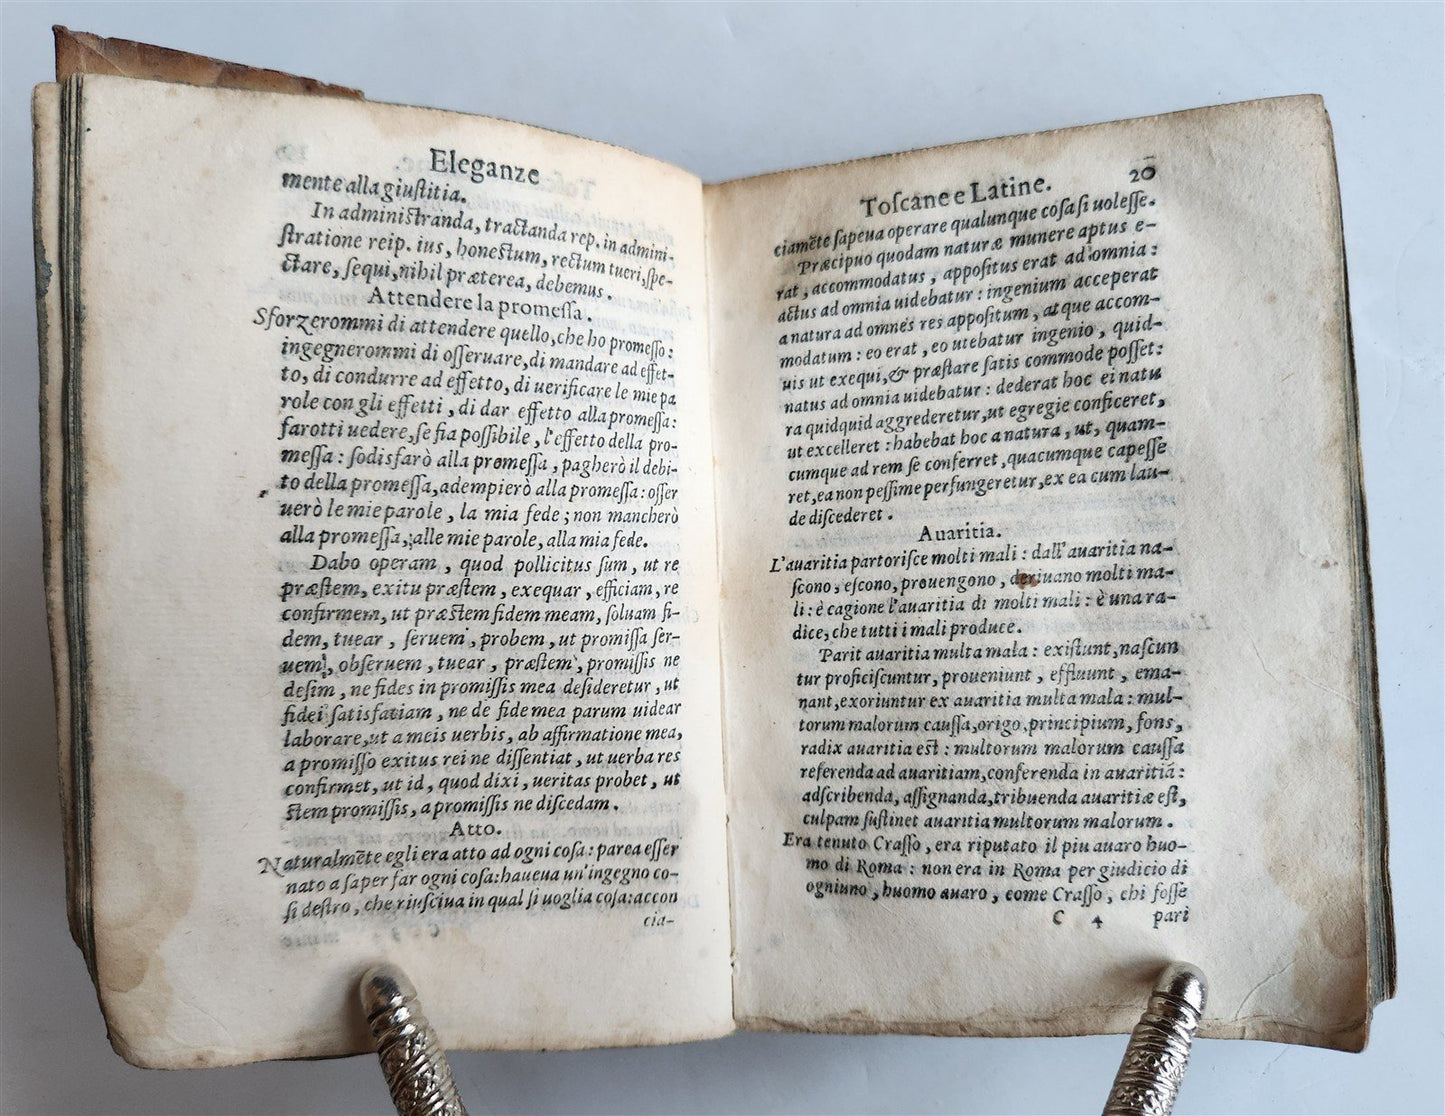 Eleganze
mente alla giuſtitia.
In adminiſtranda, tractanda rep. in admini-
ſtratione reip. ius, honeſtum, rectum tueri, ſpe-
ctare, ſequi, nihil præterea, debemus.
Attendere la promeſſa.
Sforzerommi di attendere quello, che ho promeſſo:
ingegnerommi di oſſeruare, di mandare ad effet-
to, di condurre ad effetto, di uerificare le mie pa
role con gli effetti, di dar effetto alla promeſſa:
farotti uedere, ſe fia poſſibile, l'effetto della pro-
meſſa: ſodisfarò alla promeſſa, pagherò il debi-
to della promeſſa, adempierò alla promeſſa: oſſer
uerò le mie parole, la mia fede; non mancherò
alla promeſſa, alle mie parole, alla mia fede.
Dabo operam, quod pollicitus ſum, ut re
præſtem, exitu præſtem, exequar, efficiam, re
confirmem, ut præſtem fidem meam, ſoluam fi-
dem, tuear, ſeruem, probem, ut promiſſa ſer-
uem, obſeruem, tuear, præſtem, promiſſis ne
deſim, ne fides in promiſſis mea deſideretur, ut
fidei ſatisfaciam, ne de fide mea parum uidear
laborare, ut a meis uerbis, ab affirmatione mea,
a promiſſo exitus rei ne diſſentiat, ut uerba res
confirmet, ut id, quod dixi, ueritas probet, ut
ſtem promiſſis, a promiſſis ne diſcedam.
Atto.
Naturalmēte egli era atto ad ogni coſa: parea eſſer
nato a ſaper far ogni coſa: haueua un'ingegno co-
ſi deſtro, che riuſciua in qual ſi uoglia coſa: accon
cia-
Toſcane e Latine. 20
ciamēte ſapeua operare qualunque coſa ſi uoleſſe.
Præcipuo quodam naturæ munere aptus e-
rat, accommodatus, appoſitus erat ad omnia:
actus ad omnia uidebatur: ingenium acceperat
a natura ad omnes res appoſitum, atque accom-
modatum: eo erat, eo utebatur ingenio, quid-
uis ut exequi, & præſtare ſatis commode poſſet:
natus ad omnia uidebatur: dederat hoc ei natu
ra quidquid aggrederetur, ut egregie conficeret,
ut excelleret: habebat hoc a natura, ut, quam-
cumque ad rem ſe conferret, quacumque capeſſe
ret, ea non peſſime perfungeretur, ex ea cum lau-
de diſcederet.
Avaritia.
L'auaritia partoriſce molti mali: dall'auaritia na-
ſcono, eſcono, prouengono, deriuano molti ma-
li: è cagione l'auaritia di molti mali: è una ra-
dice, che tutti i mali produce.
Parit auaritia multa mala: exiſtunt, naſcun
tur proficiſcuntur, proueniunt, effluunt, ema-
nant, exoriuntur ex auaritia multa mala: mul-
torum malorum cauſſa, origo, principium, fons,
radix auaritia eſt: multorum malorum cauſſa
referenda ad auaritiam, conferenda in auaritiā:
adſcribenda, aſſignanda, tribuenda auaritiæ eſt,
culpam ſuſtinet auaritia multorum malorum.
Era tenuto Craſſo, era riputato il piu auaro huo-
mo di Roma: non era in Roma per giudicio di
ogniuno, huomo auaro, come Craſſo, chi foſſe
C 4 pari